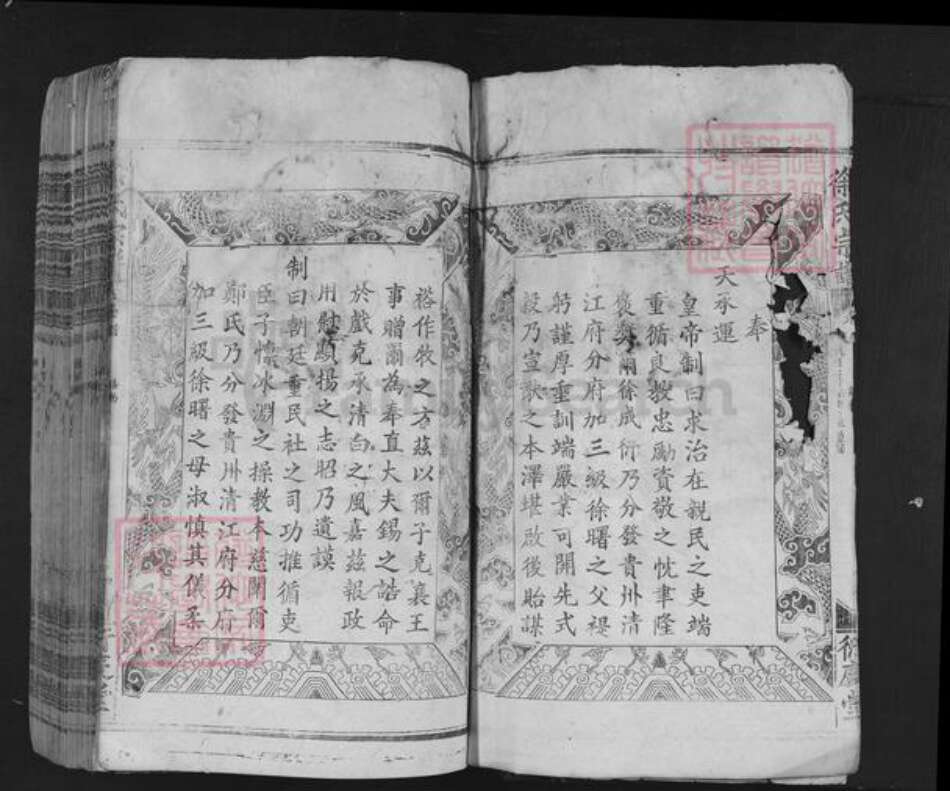 奉
天承運
皇帝制曰求治在親民之吏端
重循良教忠勵資敬之忱聿隆
褒奬爾徐成衍乃分發貴州清
江府分府加三級徐曙之父禔
躬謹厚垂訓端嚴業可開先式
穀乃宣猷之本澤堪啟後貽謀
裕作牧之方茲以爾子克襄王
事贈爾為奉直大夫錫之誥命
於戲克承清白之風嘉茲報政
用慰顯揚之志昭乃遺謨
制曰朝廷重民社之司功推循吏
臣子懷冰淵之操教本慈闈爾
鄭氏乃分發貴州清江府分府
加三級徐曙之母淑慎其儀柔
徐氏宗譜